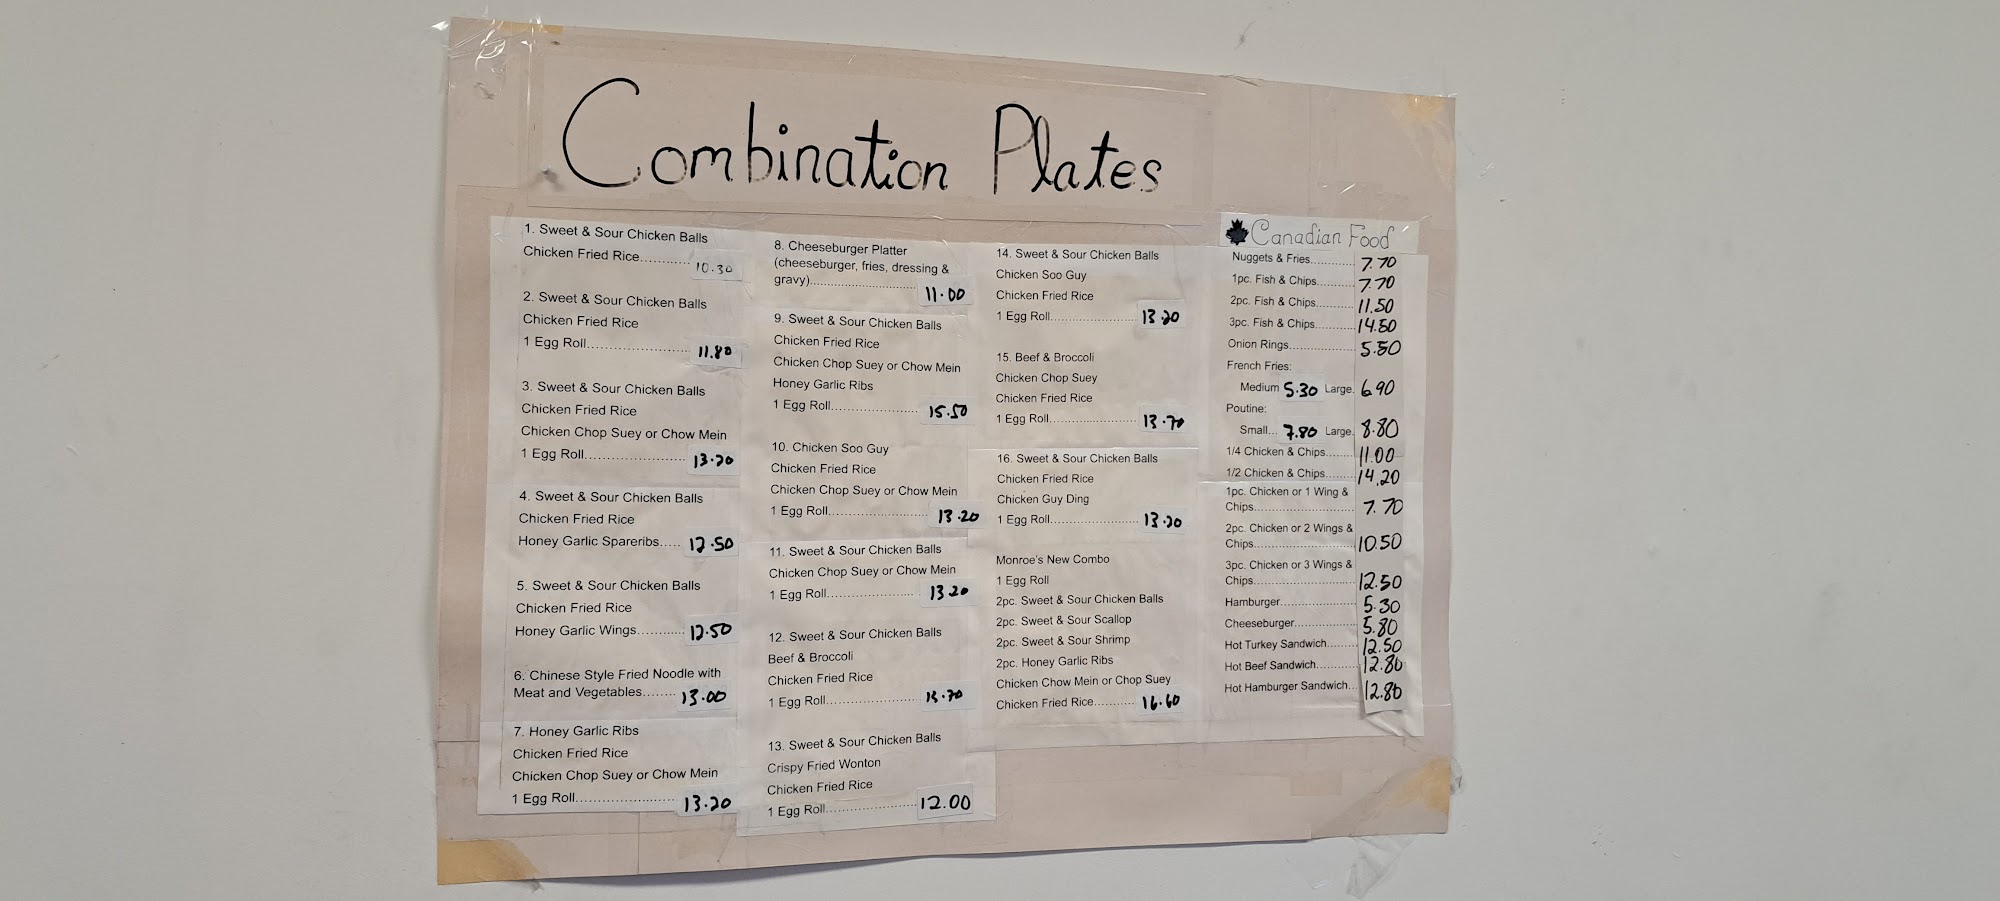 Combination Plates
1. Sweet & Sour Chicken Balls
Chicken Fried Rice.......... 10.30
2. Sweet & Sour Chicken Balls
Chicken Fried Rice
1 Egg Roll.......................... 11.80
3. Sweet & Sour Chicken Balls
Chicken Fried Rice
Chicken Chop Suey or Chow Mein
1 Egg Roll.......................... 13.20
4. Sweet & Sour Chicken Balls
Chicken Fried Rice
Honey Garlic Spareribs..... 12.50
5. Sweet & Sour Chicken Balls
Chicken Fried Rice
Honey Garlic Wings........... 12.50
6. Chinese Style Fried Noodle with
Meat and Vegetables........ 13.00
7. Honey Garlic Ribs
Chicken Fried Rice
Chicken Chop Suey or Chow Mein
1 Egg Roll.......................... 13.20
8. Cheeseburger Platter
(cheeseburger, fries, dressing &
gravy).......................... 11.00
9. Sweet & Sour Chicken Balls
Chicken Fried Rice
Chicken Chop Suey or Chow Mein
Honey Garlic Ribs
1 Egg Roll...................... 15.50
10. Chicken Soo Guy
Chicken Fried Rice
Chicken Chop Suey or Chow Mein
1 Egg Roll.......................... 13.20
11. Sweet & Sour Chicken Balls
Chicken Chop Suey or Chow Mein
1 Egg Roll...................... 13.20
12. Sweet & Sour Chicken Balls
Beef & Broccoli
Chicken Fried Rice
1 Egg Roll...................... 13.70
13. Sweet & Sour Chicken Balls
Crispy Fried Wonton
Chicken Fried Rice
1 Egg Roll...................... 12.00
14. Sweet & Sour Chicken Balls
Chicken Soo Guy
Chicken Fried Rice
1 Egg Roll...................... 13.20
15. Beef & Broccoli
Chicken Chop Suey
Chicken Fried Rice
1 Egg Roll...................... 13.70
16. Sweet & Sour Chicken Balls
Chicken Fried Rice
Chicken Guy Ding
1 Egg Roll...................... 13.20
Monroe's New Combo
1 Egg Roll
2pc. Sweet & Sour Chicken Balls
2pc. Sweet & Sour Scallop
2pc. Sweet & Sour Shrimp
2pc. Honey Garlic Ribs
Chicken Chow Mein or Chop Suey
Chicken Fried Rice.......... 16.60
Canadian Food
Nuggets & Fries.......... 7.70
1pc. Fish & Chips......... 7.70
2pc. Fish & Chips......... 11.50
3pc. Fish & Chips.......... 14.50
Onion Rings................ 5.50
French Fries:
Medium 5.30 Large. 6.90
Poutine:
Small... 7.80 Large. 8.80
1/4 Chicken & Chips....... 11.00
1/2 Chicken & Chips....... 14.20
1pc. Chicken or 1 Wing &
Chips......................... 7.70
2pc. Chicken or 2 Wings &
Chips......................... 10.50
3pc. Chicken or 3 Wings &
Chips......................... 12.50
Hamburger.................. 5.30
Cheeseburger............... 5.80
Hot Turkey Sandwich....... 12.50
Hot Beef Sandwich......... 12.80
Hot Hamburger Sandwich... 12.80